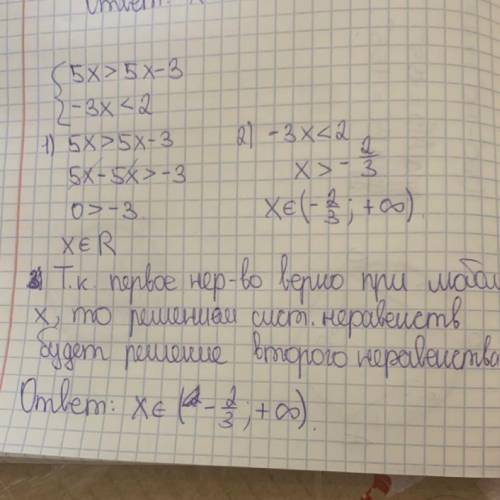 Ответ:
{5x>5x-3
{-3x<2
1) 5x>5x-3
5x-5x>-3
0>-3.
x∈R
2) -3x<2
x>-2/3
x∈(-2/3; +∞)
Т.к. первое нер-во верно при любом
x, то решением сист. неравенств
будет решение второго неравенства
Ответ: x∈(-2/3; +∞).